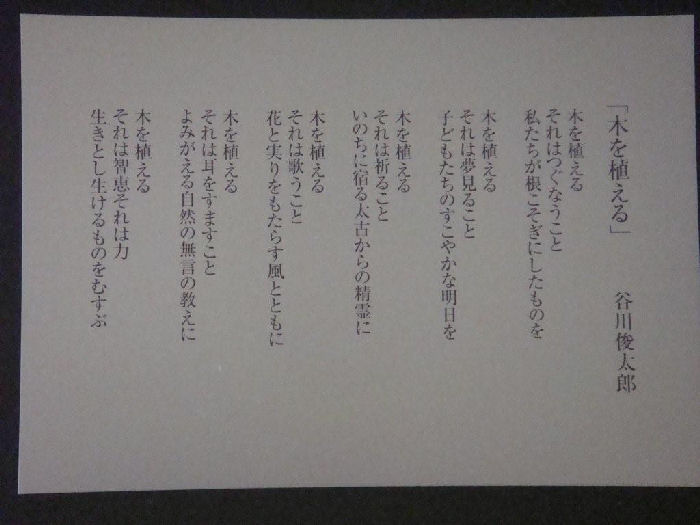 「木を植える」　谷川俊太郎
木を植える
それはつぐなうこと
私たちが根こそぎにしたものを
木を植える
それは夢見ること
子どもたちのすこやかな明日を
木を植える
それは祈ること
いのちに宿る太古からの精霊に
木を植える
それは歌うこと
花と実りをもたらす風とともに
木を植える
それは耳をすますこと
よみがえる自然の無言の教えに
木を植える
それは智恵それは力
生きとし生けるものをむすぶ